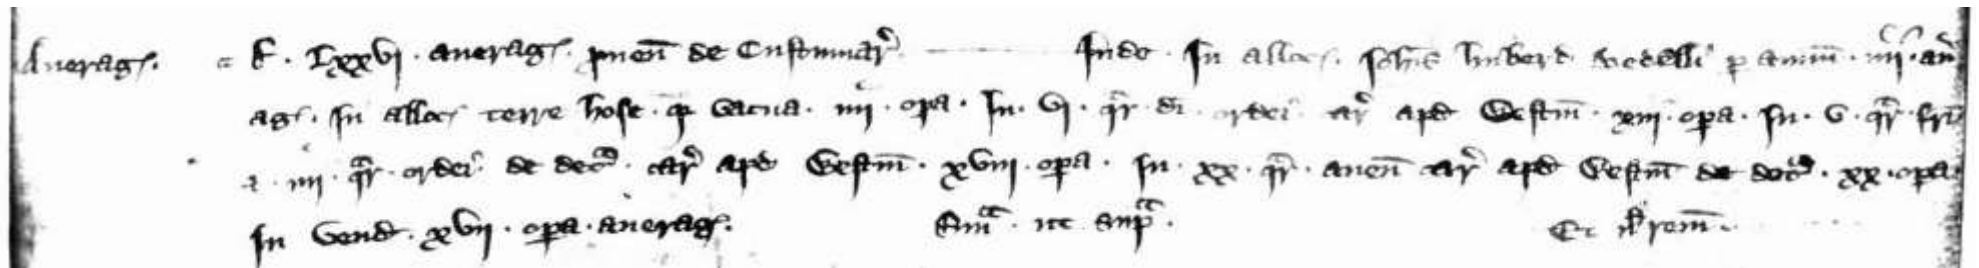 Auerag̃. — ꝶ. Lxxvj. auerag̃. ꝓuen̄ de Custumar̃. Inde. In alloc̃. Joh̃is huberd. Bedelli p annū. iiijᶜ. aū
ag̃. In alloc̃ terre hose. q̇ Vacua. iiij. oꝑa. In. vj. qr̃. di ordei. car̃ apd Westm̄. xiij. oꝑa. In. v. qr̃. frū
⁊. iiij. qr̃. ordei. de decᵃ. car̃ apd Westm̄. xviij. oꝑa. In. xx. qr̃. auen̄ car̃ apd Westm̄ de decᵃ. xx. oꝑa.
In vend̃. xvij. oꝑa. auerag̃. Sm̄ᵃ. ut supᵃ. Et nᶦ reman̄.